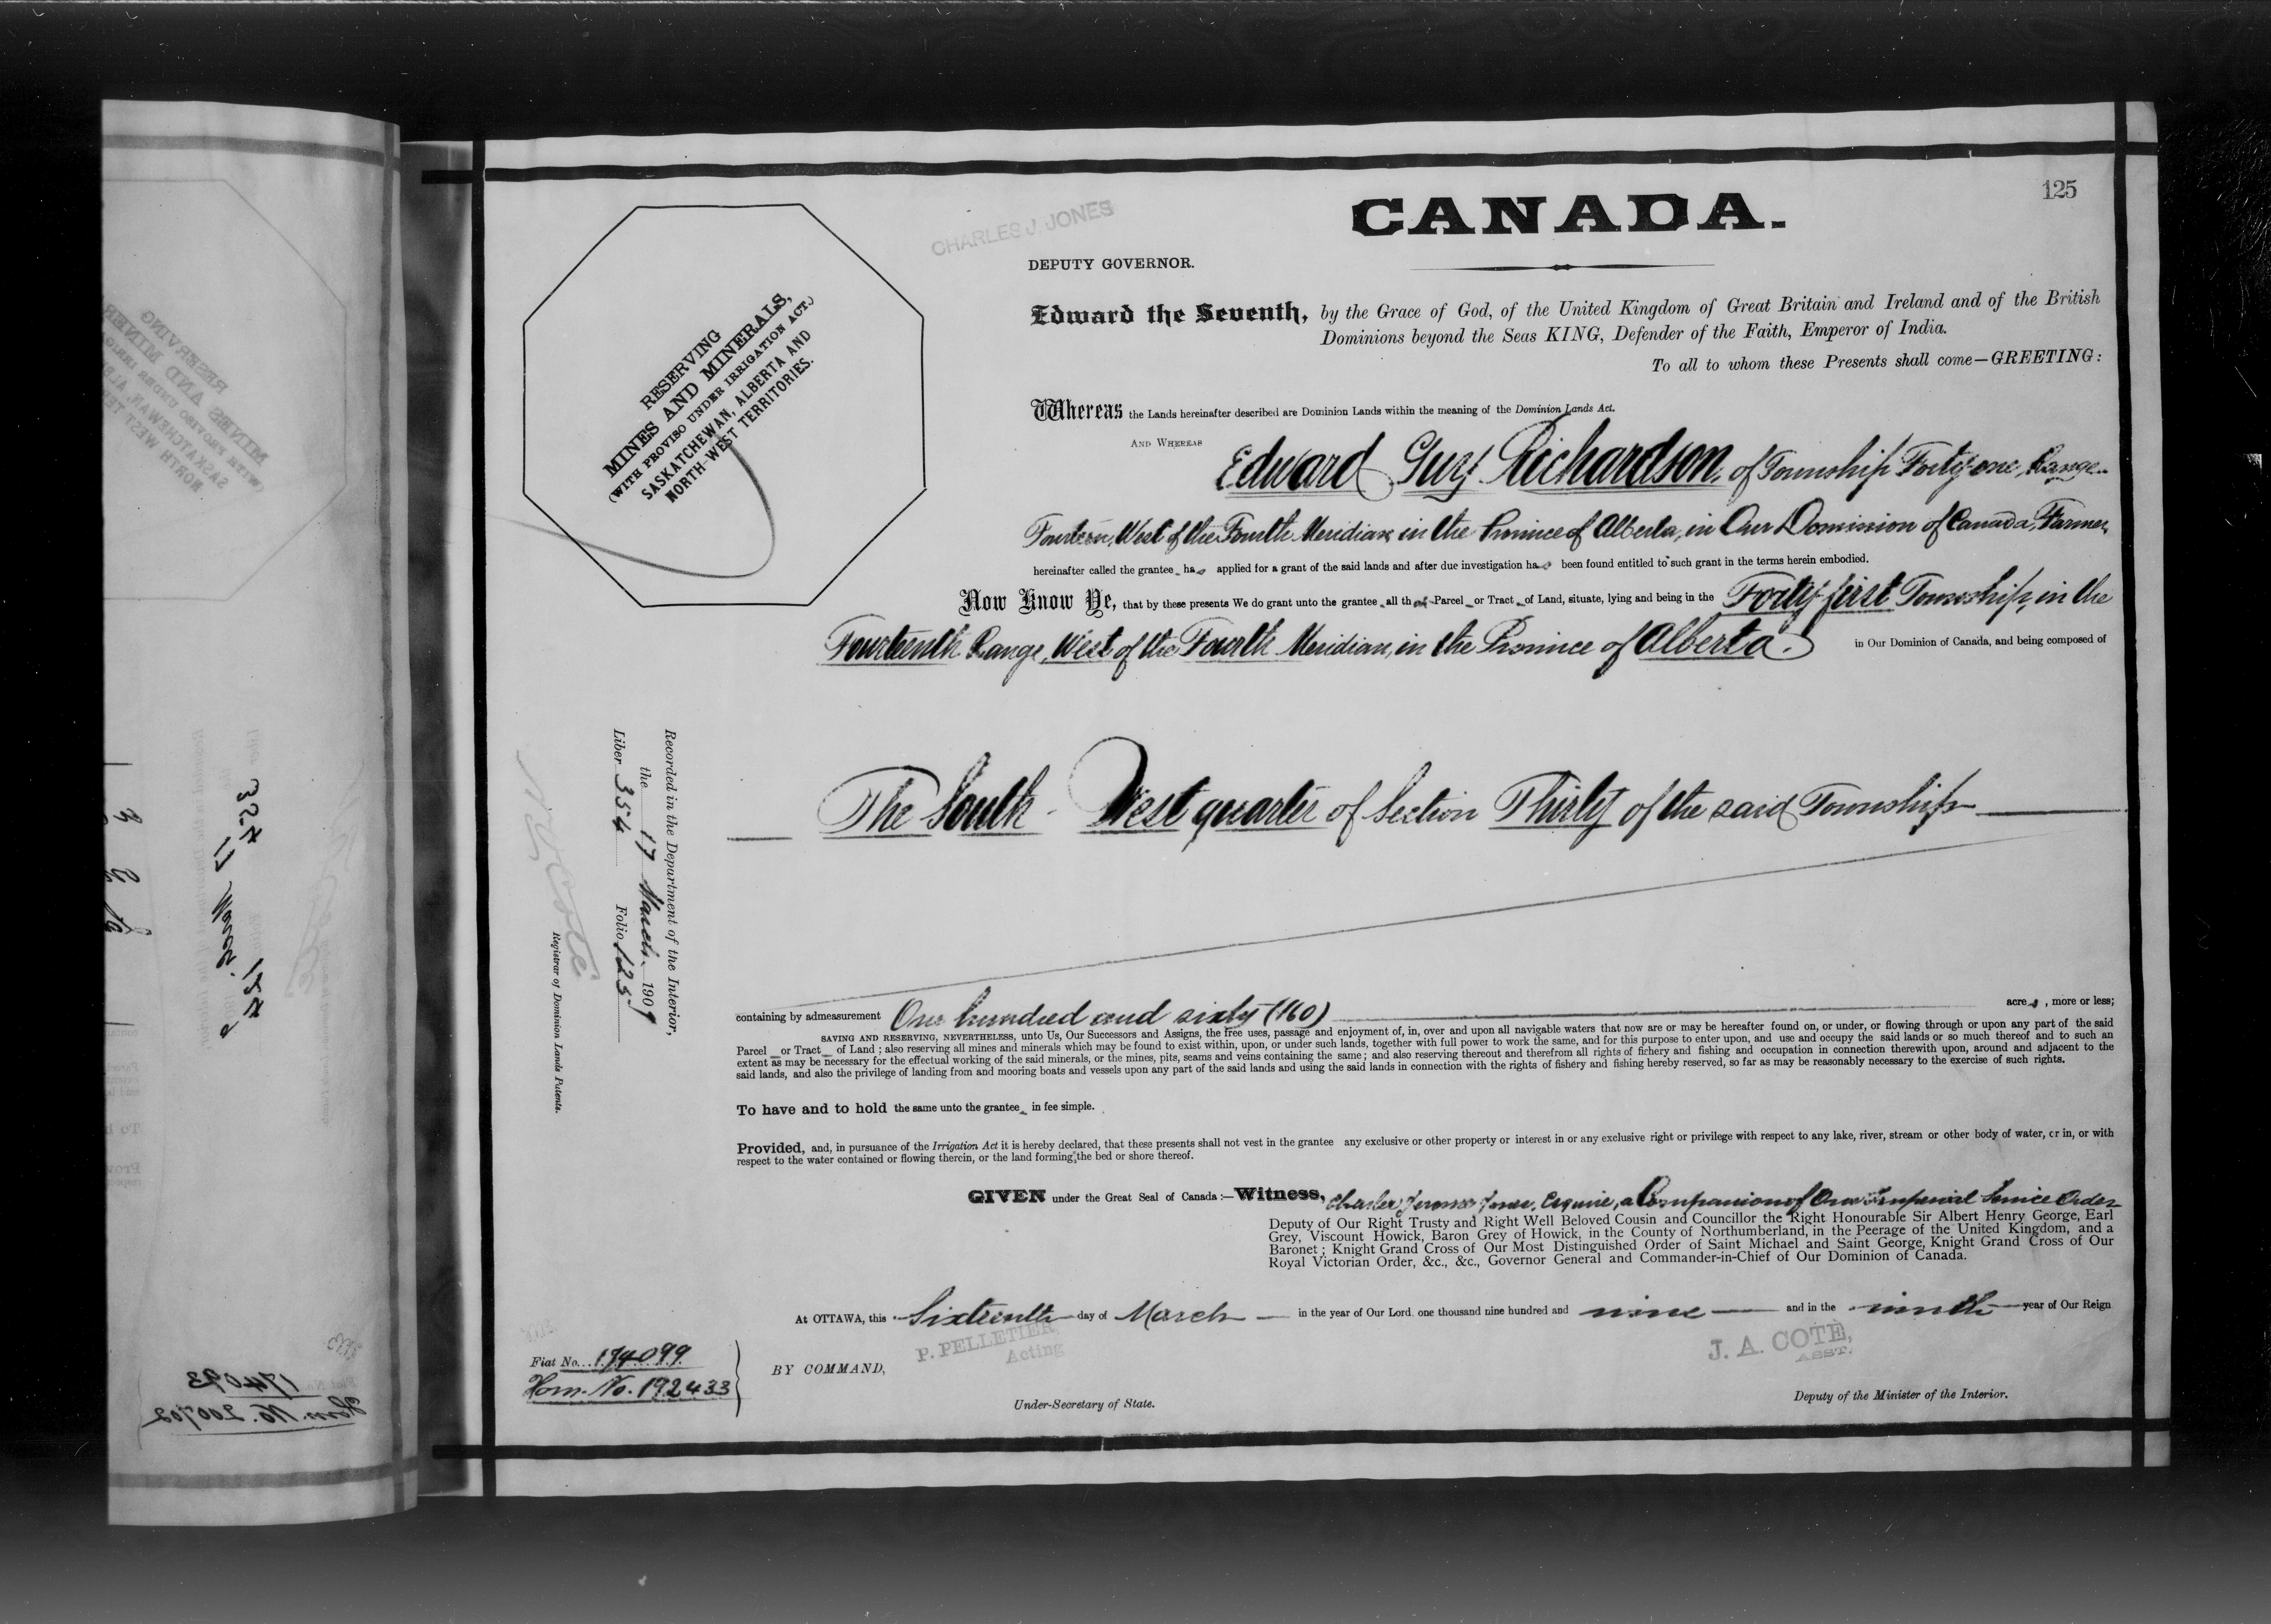 125
CANADA.
CHARLES J. JONES
DEPUTY GOVERNOR.
RESERVING
MINES AND MINERALS,
(WITH PROVISO UNDER IRRIGATION ACT.)
SASKATCHEWAN, ALBERTA AND
NORTH-WEST TERRITORIES.
Edward the Seventh, by the Grace of God, of the United Kingdom of Great Britain and Ireland and of the British
Dominions beyond the Seas KING, Defender of the Faith, Emperor of India.
To all to whom these Presents shall come—GREETING:
Whereas the Lands hereinafter described are Dominion Lands within the meaning of the Dominion Lands Act.
AND WHEREAS Edward Guy Richardson, of Township Forty-one, Range
Fourteen, West of the Fourth Meridian, in the Province of Alberta, in Our Dominion of Canada, Farmer,
hereinafter called the grantee has applied for a grant of the said lands and after due investigation has been found entitled to such grant in the terms herein embodied.
Now Know Ye, that by these presents We do grant unto the grantee all that Parcel or Tract of Land, situate, lying and being in the Forty-first Township, in the
Fourteenth Range, West of the Fourth Meridian, in the Province of Alberta in Our Dominion of Canada, and being composed of
The South-West quarter of Section Thirty of the said Township
Recorded in the Department of the Interior,
the 17 March 1909
Liber 354 Folio 125
N. O. Coté
Registrar of Dominion Lands Patents.
containing by admeasurement One hundred and sixty (160) acres, more or less;
SAVING AND RESERVING, NEVERTHELESS, unto Us, Our Successors and Assigns, the free uses, passage and enjoyment of, in, over and upon all navigable waters that now are or may be hereafter found on, or under, or flowing through or upon any part of the said
Parcel or Tract of Land; also reserving all mines and minerals which may be found to exist within, upon, or under such lands, together with full power to work the same, and for this purpose to enter upon, and use and occupy the said lands or so much thereof and to such an
extent as may be necessary for the effectual working of the said minerals, or the mines, pits, seams and veins containing the same; and also reserving thereout and therefrom all rights of fichery and fishing and occupation in connection therewith upon, around and adjacent to the
said lands, and also the privilege of landing from and mooring boats and vessels upon any part of the said lands and using the said lands in connection with the rights of fishery and fishing hereby reserved, so far as may be reasonably necessary to the exercise of such rights.
To have and to hold the same unto the grantee in fee simple.
Provided, and, in pursuance of the Irrigation Act it is hereby declared, that these presents shall not vest in the grantee any exclusive or other property or interest in or any exclusive right or privilege with respect to any lake, river, stream or other body of water, or in, or with
respect to the water contained or flowing therein, or the land forming the bed or shore thereof.
GIVEN under the Great Seal of Canada:—Witness, Charles Jerome Jones, Esquire, a Companion of Our Imperial Service Order
Deputy of Our Right Trusty and Right Well Beloved Cousin and Councillor the Right Honourable Sir Albert Henry George, Earl
Grey, Viscount Howick, Baron Grey of Howick, in the County of Northumberland, in the Peerage of the United Kingdom, and a
Baronet; Knight Grand Cross of Our Most Distinguished Order of Saint Michael and Saint George, Knight Grand Cross of Our
Royal Victorian Order, &c., &c., Governor General and Commander-in-Chief of Our Dominion of Canada.
At OTTAWA, this Sixteenth day of March in the year of Our Lord one thousand nine hundred and nine and in the ninth year of Our Reign
Fiat No. 174099
Hom. No. 192433
BY COMMAND,
P. PELLETIER,
Acting
Under-Secretary of State.
J. A. COTÉ,
ASST.
Deputy of the Minister of the Interior.